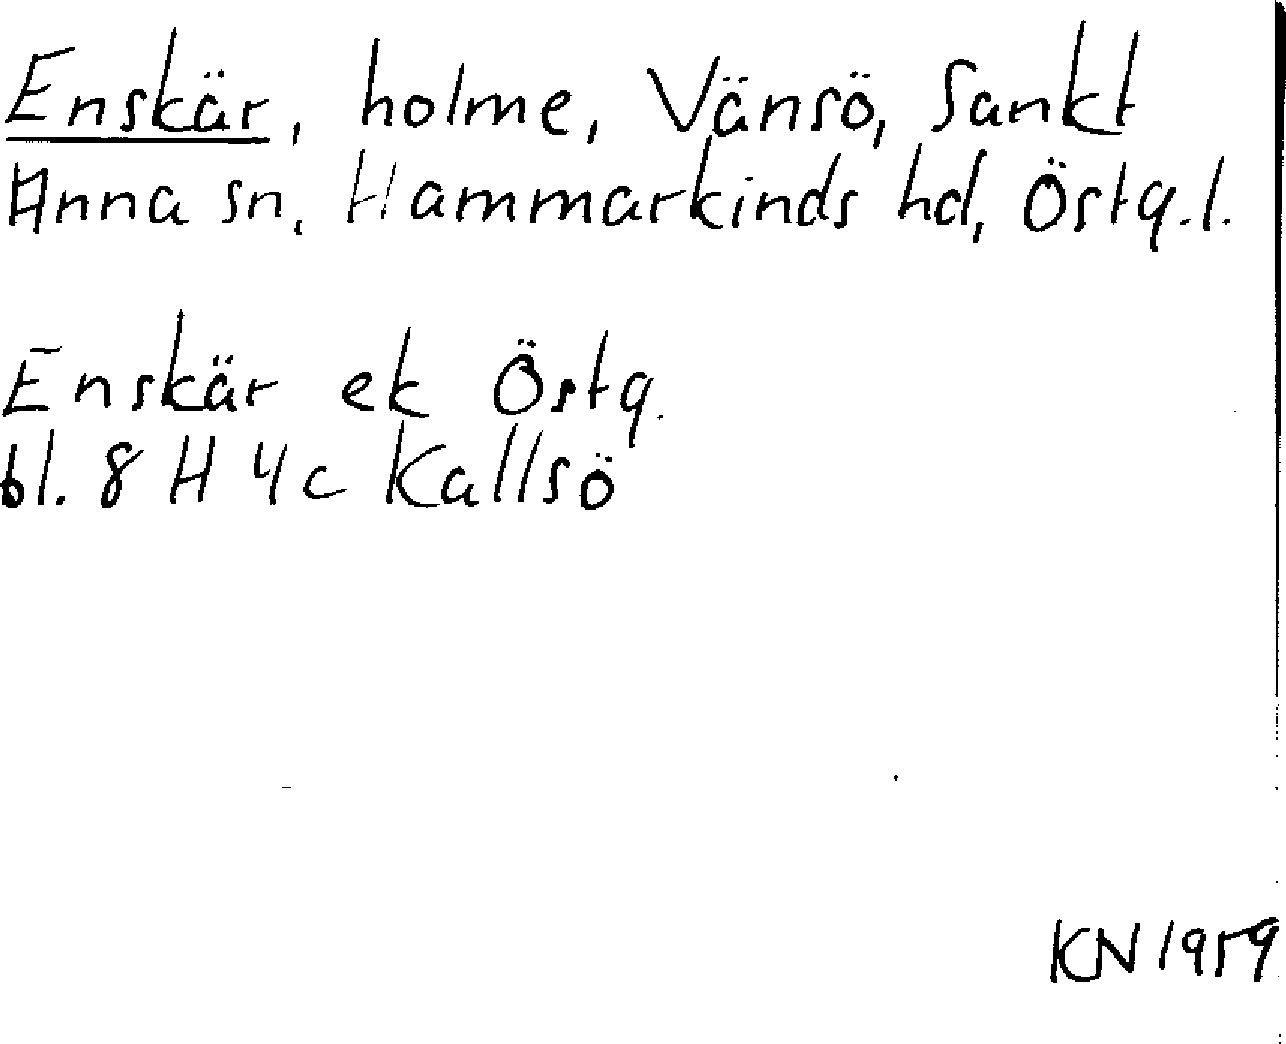 Enskär, holme, Vänsö, Sankt
Anna sn, Hammarkinds hd, Östg.l.
Enskär ek Östg.
bl. 8 H 4c Kallsö
KN 1959